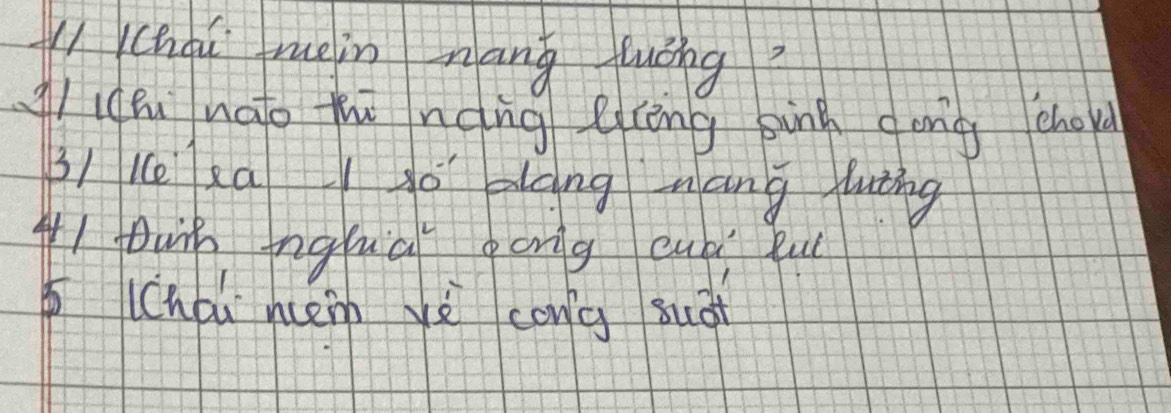 1/ Khái niện năng lượng?
2/ Khi nào thì năng lượng sinh công cho vd
3/ Kể ra 1 số dạng năng lượng
4/ Định nghĩa công của lực
5 Khái niệm về công suất